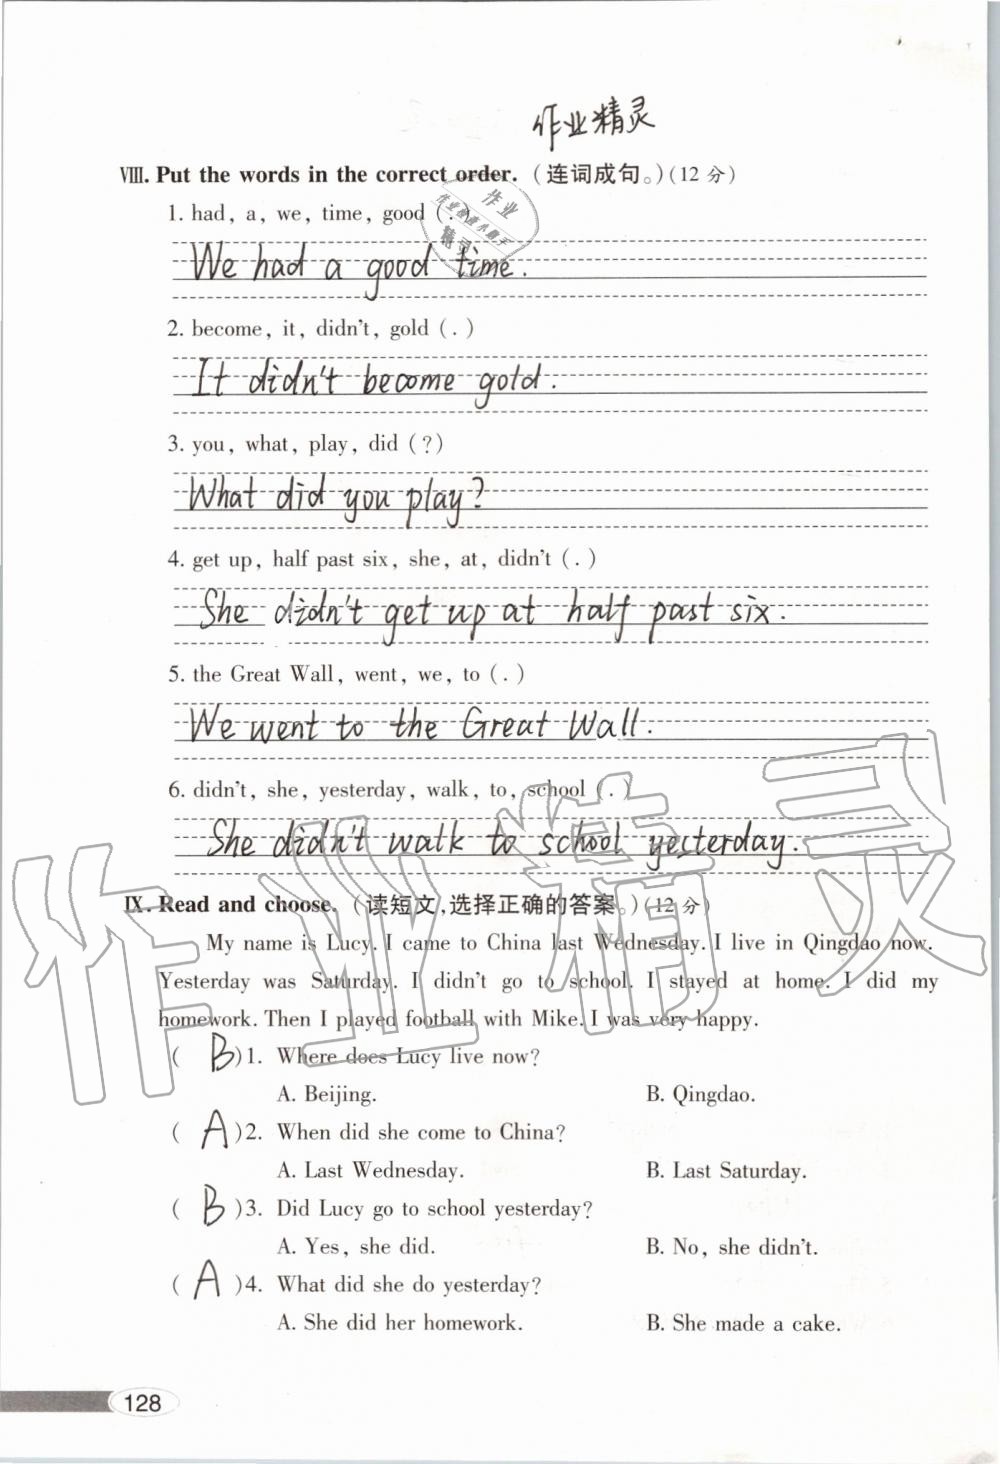 作业精灵
Ⅷ. Put the words in the correct order. (连词成句。)(12 分)
1. had, a, we, time, good (.)
We had a good time.
2. become, it, didn't, gold (.)
It didn't become gold.
3. you, what, play, did (?)
What did you play?
4. get up, half past six, she, at, didn't (.)
She didn't get up at half past six.
5. the Great Wall, went, we, to (.)
We went to the Great Wall.
6. didn't, she, yesterday, walk, to, school (.)
She didn't walk to school yesterday.
Ⅸ. Read and choose. (读短文,选择正确的答案。)(12 分)
My name is Lucy. I came to China last Wednesday. I live in Qingdao now.
Yesterday was Saturday. I didn't go to school. I stayed at home. I did my
homework. Then I played football with Mike. I was very happy.
( B )1. Where does Lucy live now?
A. Beijing. B. Qingdao.
( A )2. When did she come to China?
A. Last Wednesday. B. Last Saturday.
( B )3. Did Lucy go to school yesterday?
A. Yes, she did. B. No, she didn't.
( A )4. What did she do yesterday?
A. She did her homework. B. She made a cake.
128
作业精灵